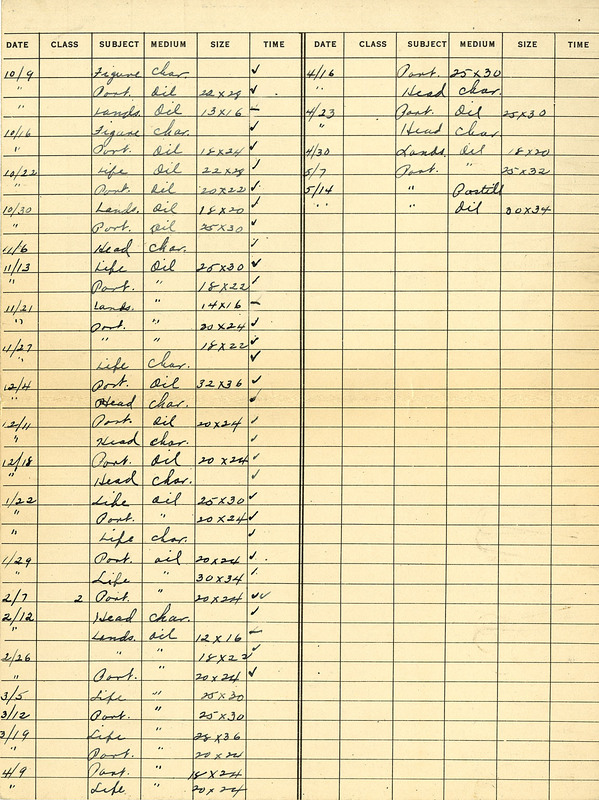 DATE CLASS SUBJECT MEDIUM SIZE TIME
10/9 Figure Char. ✓
" Port. Oil 22x28 ✓
" Lands. Oil 13x16 –
10/16 Figure Char. ✓
" Port. Oil 18x24 ✓
10/22 Life Oil 22x28 ✓
" Port. Oil 20x22 ✓
10/30 Lands. Oil 18x20 ✓
" Port. Oil 25x30 ✓
11/6 Head Char. ✓
11/13 Life Oil 25x30 ✓
" Port. " 18x22 ✓
11/21 Lands. " 14x16 –
" Port. " 20x24 ✓
11/27 " " 18x22 ✓
" Life Char. ✓
12/4 Port. Oil 32x36 ✓
" Head Char. ✓
12/11 Port. Oil 20x24 ✓
" Head Char. ✓
12/18 Port. Oil 20x24 ✓
" Head Char. ✓
1/22 Life Oil 25x30 ✓
" Port. " 20x24 ✓
" Life Char. ✓
1/29 Port. Oil 20x24 ✓
" Life " 30x34 ✓
2/7 2 Port. " 20x24 ✓✓
2/12 Head Char. ✓
" Lands. Oil 12x16 –
2/26 " " 18x22 ✓
" Port. " 20x24 ✓
3/5 Life " 25x30
3/12 Port. " 25x30
3/19 Life " 28x36
" Port. " 20x24
4/9 Port. " 18x24
" Life " 20x24
DATE CLASS SUBJECT MEDIUM SIZE TIME
4/16 Port. 25x30
" Head Char.
4/23 Port. Oil 25x30
" Head Char.
4/30 Lands. Oil 18x20
5/7 Port. " 25x32
5/14 " Pastell
" " Oil 30x34